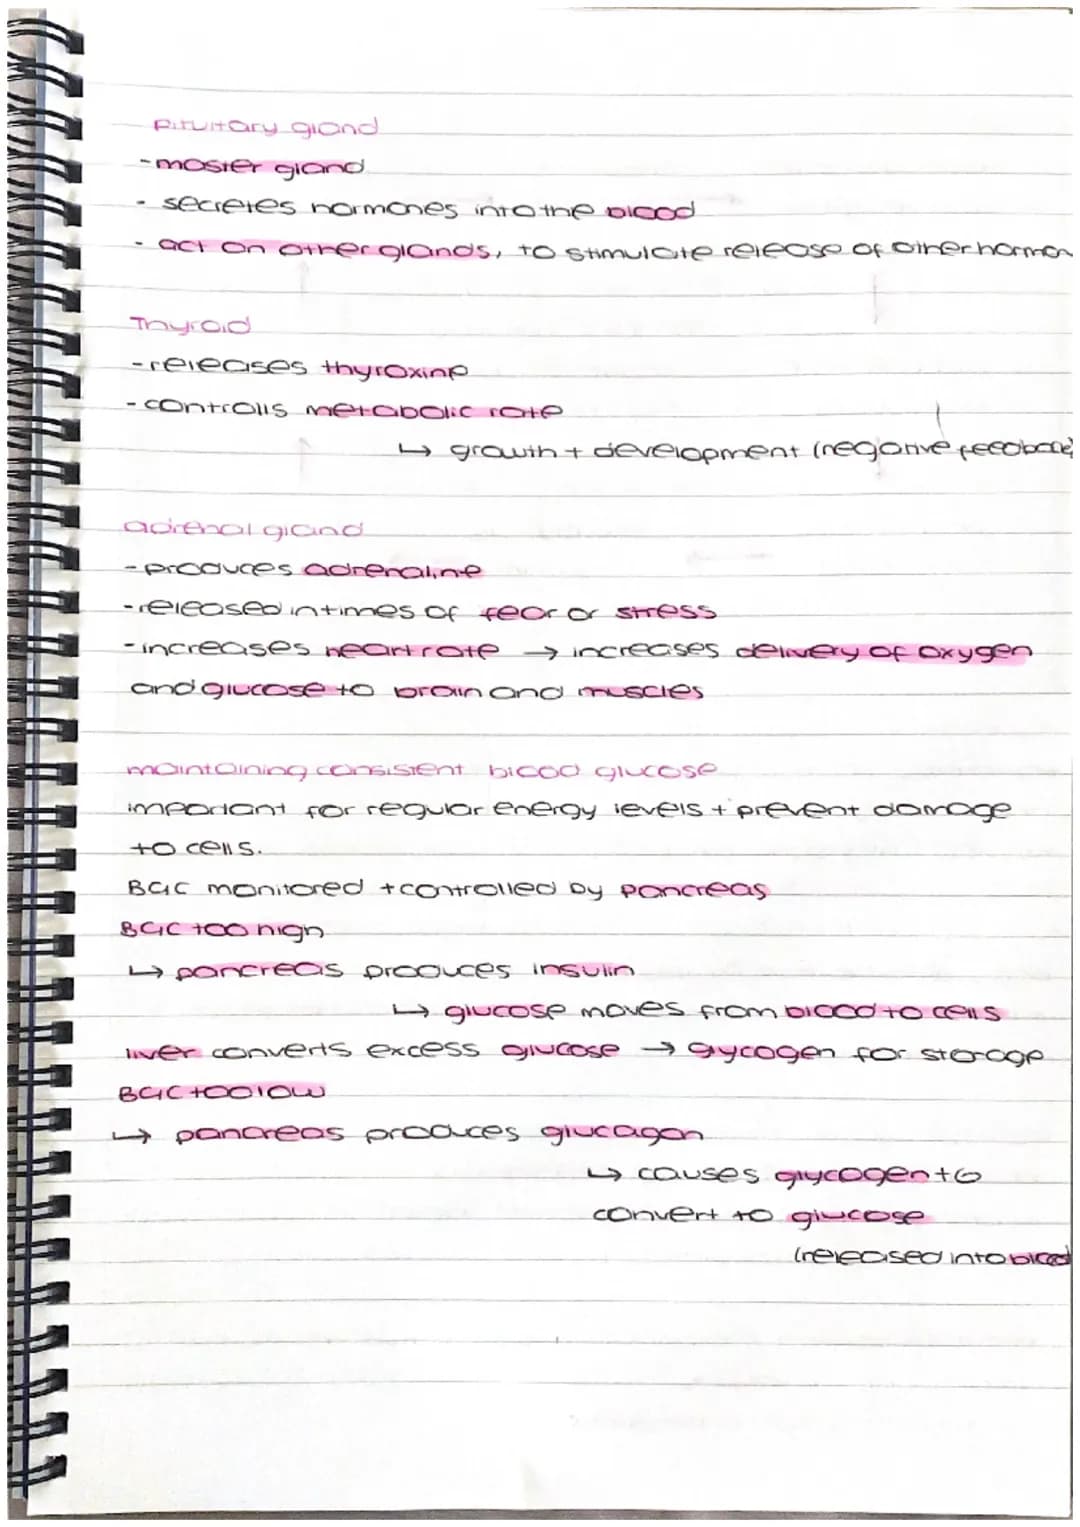 Pituitary gland
- master gland
- secretes hormones into the blood
- act on other glands, to stimulate release of other hormon
Thyroid
- releases thyroxine
- controlls metabolic rate
↳ growth + development (negative feedback)
adrenal gland
- produces adrenaline
- released in times of fear or stress
- increases heart rate → increases delivery of oxygen
and glucose to brain and muscles
maintaining consistent blood glucose
important for regular energy levels + prevent damage
to cells.
BGC monitored + controlled by pancreas
BGC too high
↳ pancreas produces insulin
↳ glucose moves from blood to cells
liver converts excess glucose → gycogen for storage
BGC too low
↳ pancreas produces glucagon
↳ causes glycogen to
convert to glucose
(released into blood